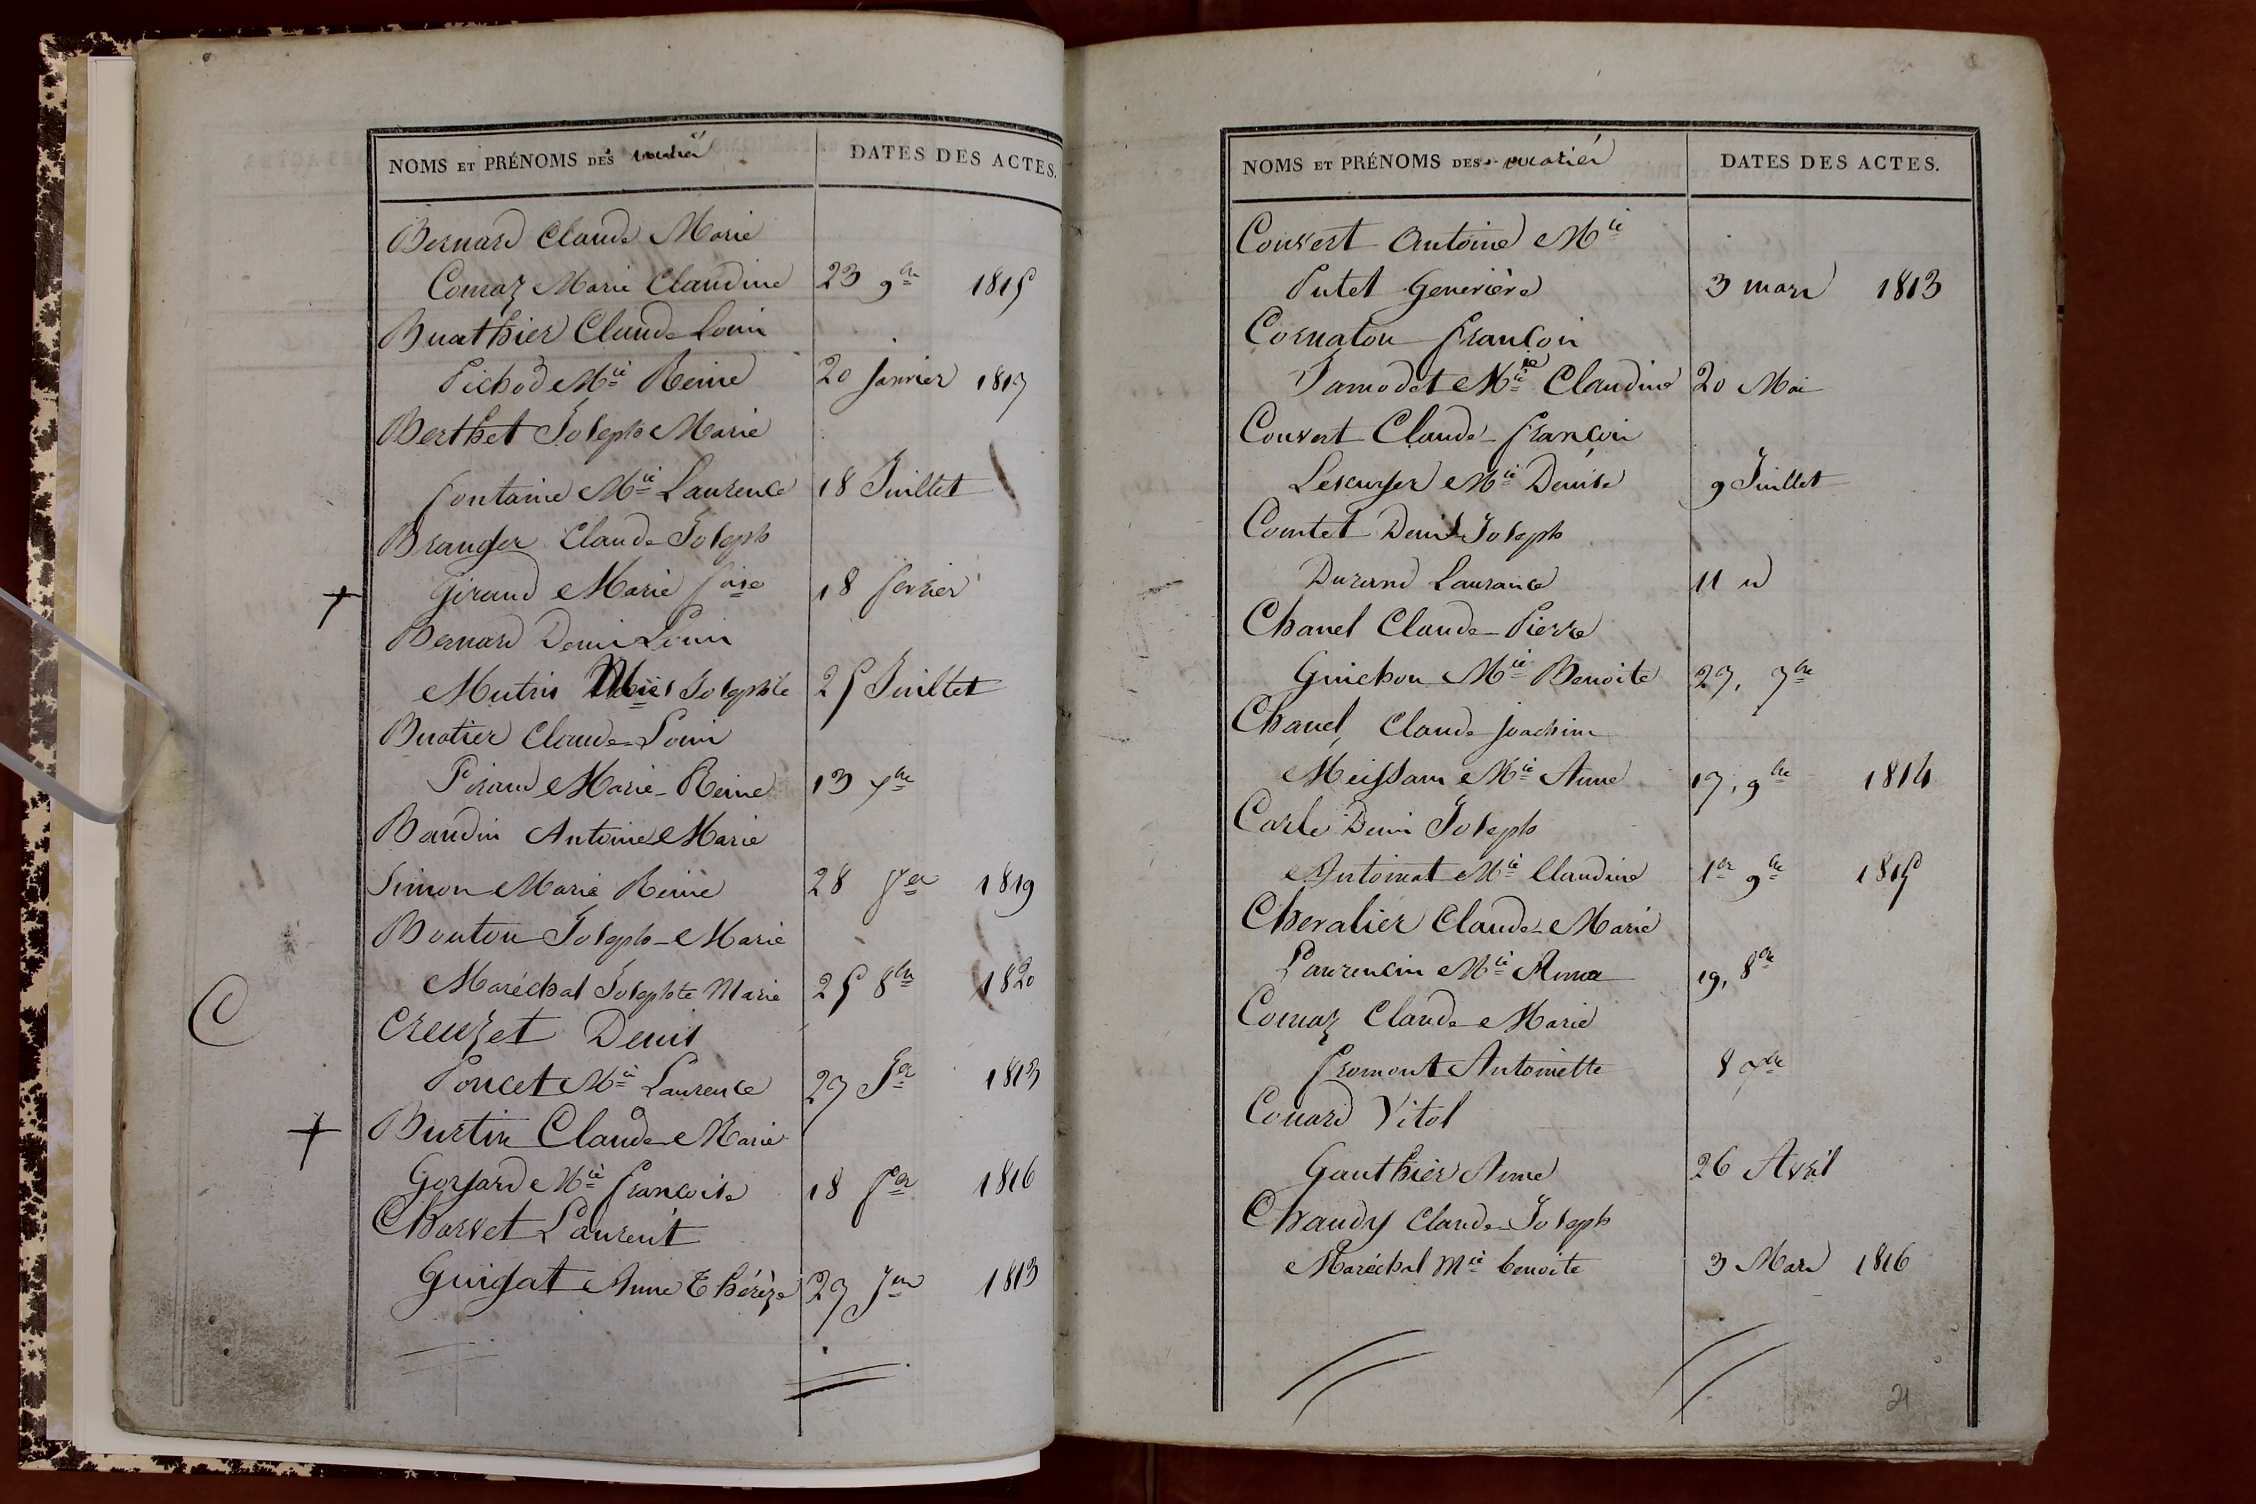 NOMS ET PRÉNOMS DES mariés DATES DES ACTES.
Bernard Claude Marie
Comaz Marie Claudine 23 9bre 1815
Buathier Claude Louis
Pichod Mie Reine 20 Janvier 1817
Berthet Joseph Marie
fontaine Mie Laurence 18 Juillet
Branger Claude Joseph
+ Giraud Marie foise 18 fevrier
Bernard Denis Louis
Mutin Josephte 25 Juillet
Buatier Claude Louis
Piraud Marie Reine 13 xbre
Baudin Antoine Marie
Simon Marie Reine 28 Jer 1819
Bouton Joseph Marie
Maréchal Josephte Marie 25 8bre 1820
C
Creuzet Denis
Poncet Mie Laurence 27 Jer 1813
+ Burtin Claude Marie
Goyard Mie françoise 18 fer 1816
Charvet Laurent
Guigat Anne Thérèze 27 Jer 1813
NOMS ET PRÉNOMS DES mariés DATES DES ACTES.
Convert Antoine Mie
Putet Genevière 3 mars 1813
Cornaton françois
Jamodet Mie Claudine 20 Mai
Convert Claude françois
Lescuyer Mie Denise 9 Juillet
Comtet Denis Joseph
Durand Laurance 11 id
Chanel Claude Pierre
Guichon Mie Benoite 27, 7bre
Chanel, Claude Joachim
Meissam Mie Anne 17, 9bre 1814
Carle Denis Joseph
Antoinat Mie Claudine 1er 9bre 1815
Chevalier Claude Marie
Laurencin Mie Anne 19, 8bre
Comaz Claude Marie
fromont Antoinette 8 xbre
Couard Vital
Gauthier Anne 26 Avril
Chaudy Claude Joseph
Maréchal Mie benoite 3 Mars 1816
21